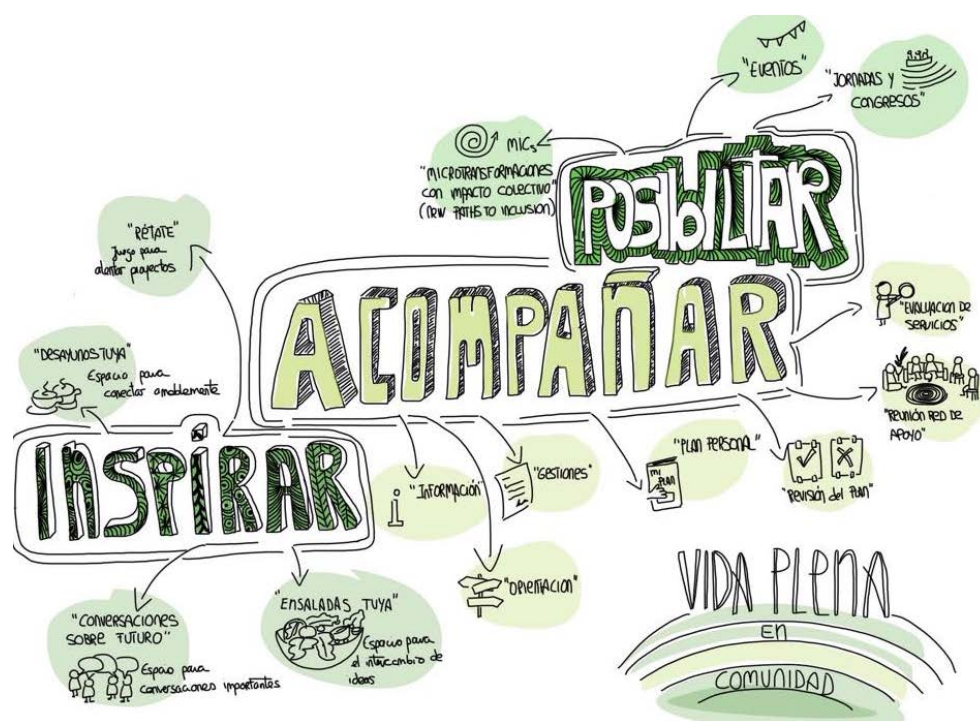 "EVENTOS"
"JORNADAS Y
CONGRESOS"
MICs
"MICROTRANSFORMACIONES
CON IMPACTO COLECTIVO"
(NEW PATHS TO INCLUSION)
POSIBILITAR
"RÉTATE"
Juego para
alentar proyectos
ACOMPAÑAR
"EVALUACION DE
SERVICIOS"
"DESAYUNOS TUYA"
Espacio para
conectar amablemente
"REUNIÓN RED DE
APOYO"
INSPIRAR
i "INFORMACIÓN"
"GESTIONES"
"PLAN PERSONAL"
MI
PLAN
"REVISIÓN del PLAN"
"ORIENTACION"
"CONVERSACIONES
SOBRE FUTURO"
Espacio para
conversaciones importantes
"ENSALADAS TUYA"
Espacio para
el intercambio de
ideas
VIDA PLENA
EN
COMUNIDAD